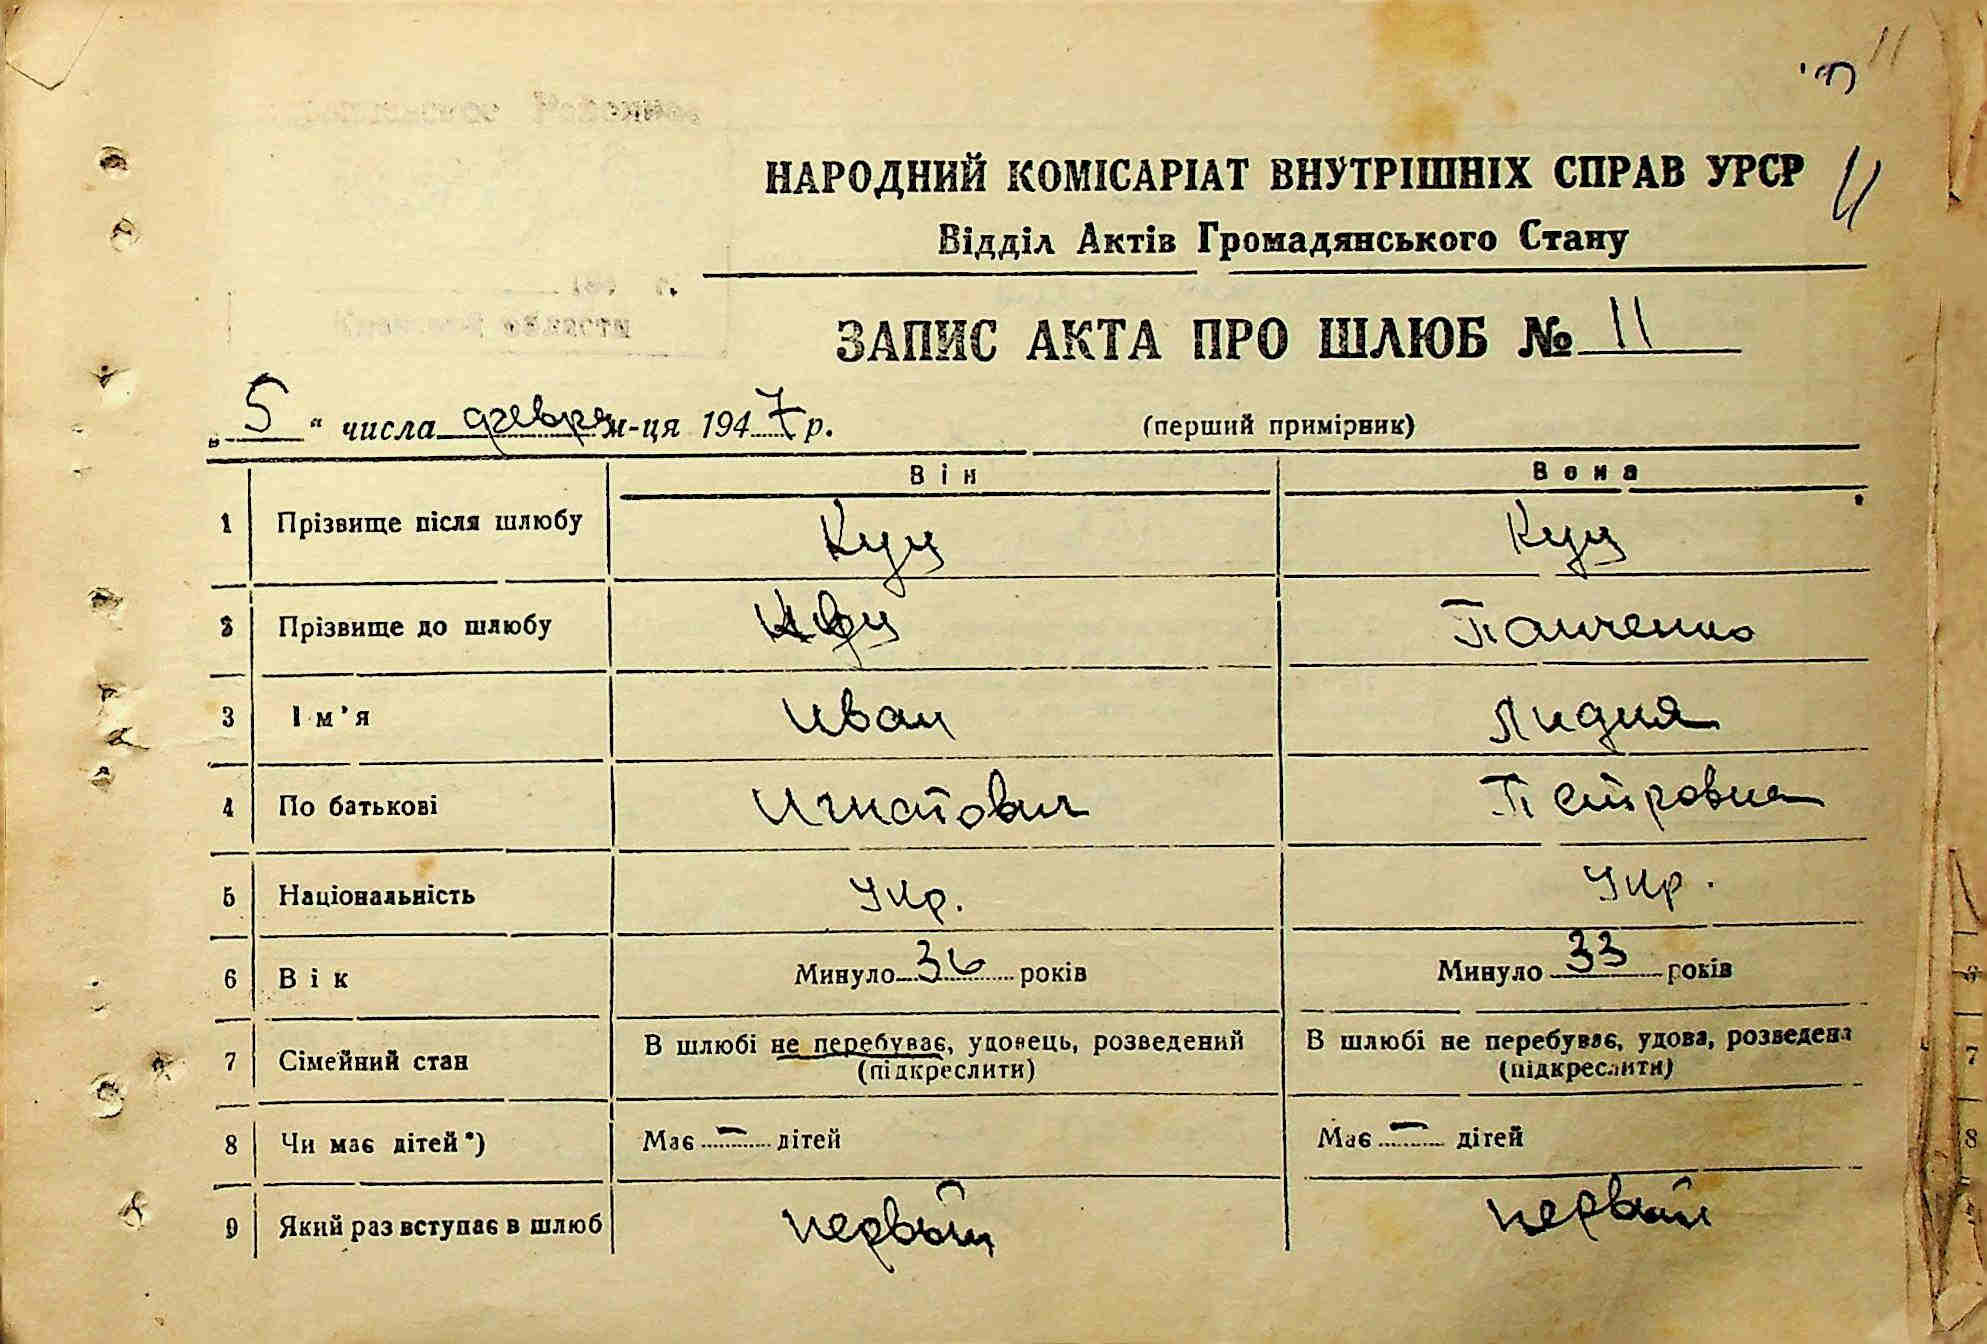 11
11
НАРОДНИЙ КОМІСАРІАТ ВНУТРІШНІХ СПРАВ УРСР
Відділ Актів Громадянського Стану
ЗАПИС АКТА ПРО ШЛЮБ № 11
„ 5 “ числа февря м-ця 1947 р. (перший примірник)
Він Вона
1 Прізвище після шлюбу Куц Куц
2 Прізвище до шлюбу Куц Панченко
3 Ім'я Иван Лидия
4 По батькові Игнатович Петровна
5 Національність Укр. Укр.
6 Вік Минуло 36 років Минуло 33 років
7 Сімейний стан В шлюбі не перебуває, удовець, розведений В шлюбі не перебуває, удова, розведена
(підкреслити) (підкреслити)
8 Чи має дітей*) Має – дітей Має – дітей
9 Який раз вступає в шлюб первый первый